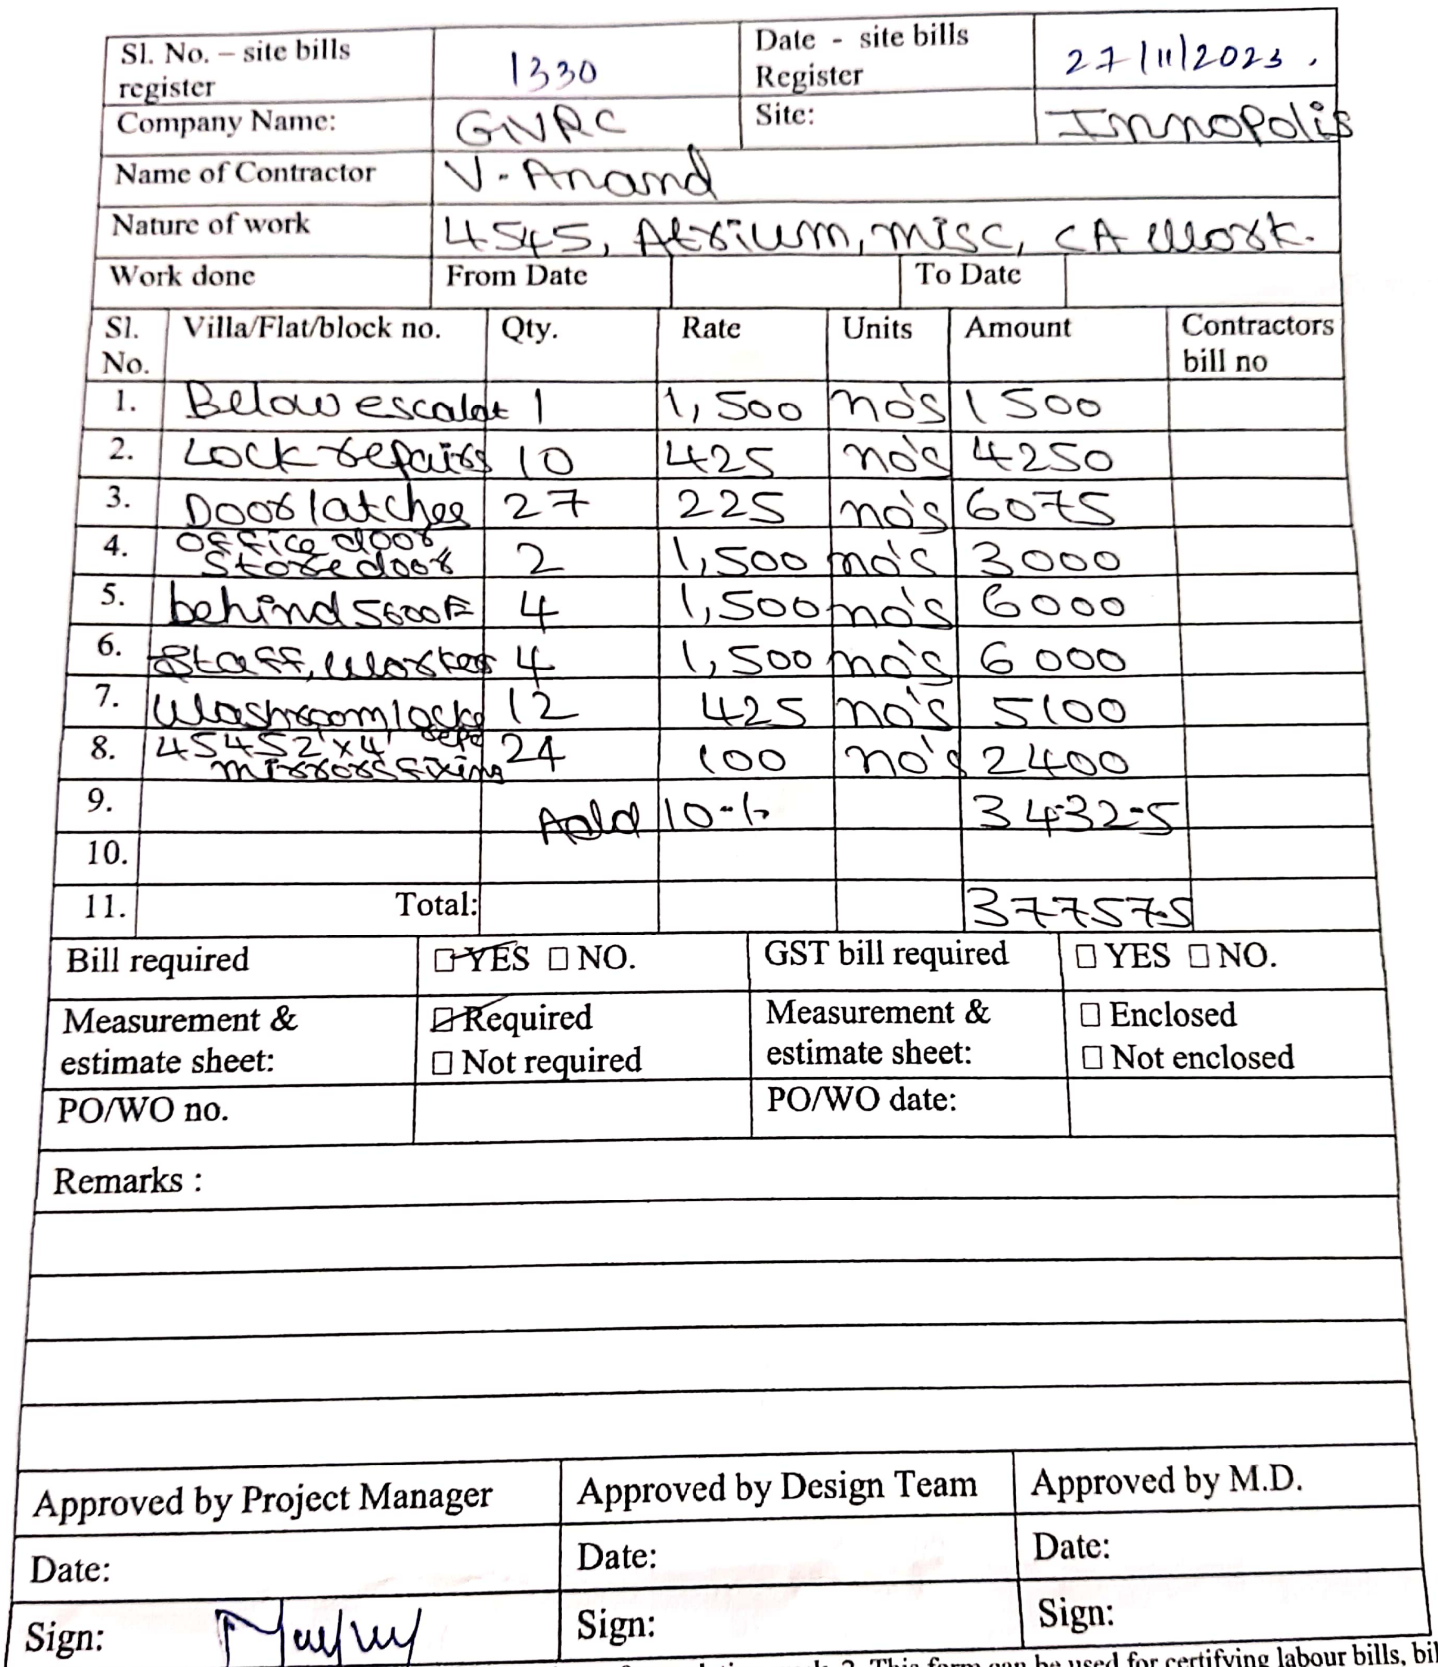 Sl. No. – site bills register 1330 Date - site bills Register 27/11/2023.
Company Name: GVRC Site: Innopolis
Name of Contractor V. Anand
Nature of work 4545, Atrium, misc, CA work.
Work done From Date To Date
Sl. No. Villa/Flat/block no. Qty. Rate Units Amount Contractors bill no
1. Below escalat 1 1,500 no's 1500
2. Lock repairs 10 425 no's 4250
3. Door latches 27 225 no's 6075
4. Office door Store door 2 1,500 no's 3000
5. behind 5600E 4 1,500 no's 6000
6. Staff, worker 4 1,500 no's 6000
7. Washroom locks 12 425 no's 5100
8. 4545 2'x4' mirrors fixing 24 100 no's 2400
9. Add 10% 3432.5
10.
11. Total: 37757.5
Bill required ☐ YES ☐ NO. GST bill required ☐ YES ☐ NO.
Measurement & estimate sheet: ☐ Required ☐ Not required Measurement & estimate sheet: ☐ Enclosed ☐ Not enclosed
PO/WO no. PO/WO date:
Remarks :
Approved by Project Manager Approved by Design Team Approved by M.D.
Date: Date: Date:
Sign: Sign: Sign:
This form can be used for certifying labour bills, bil